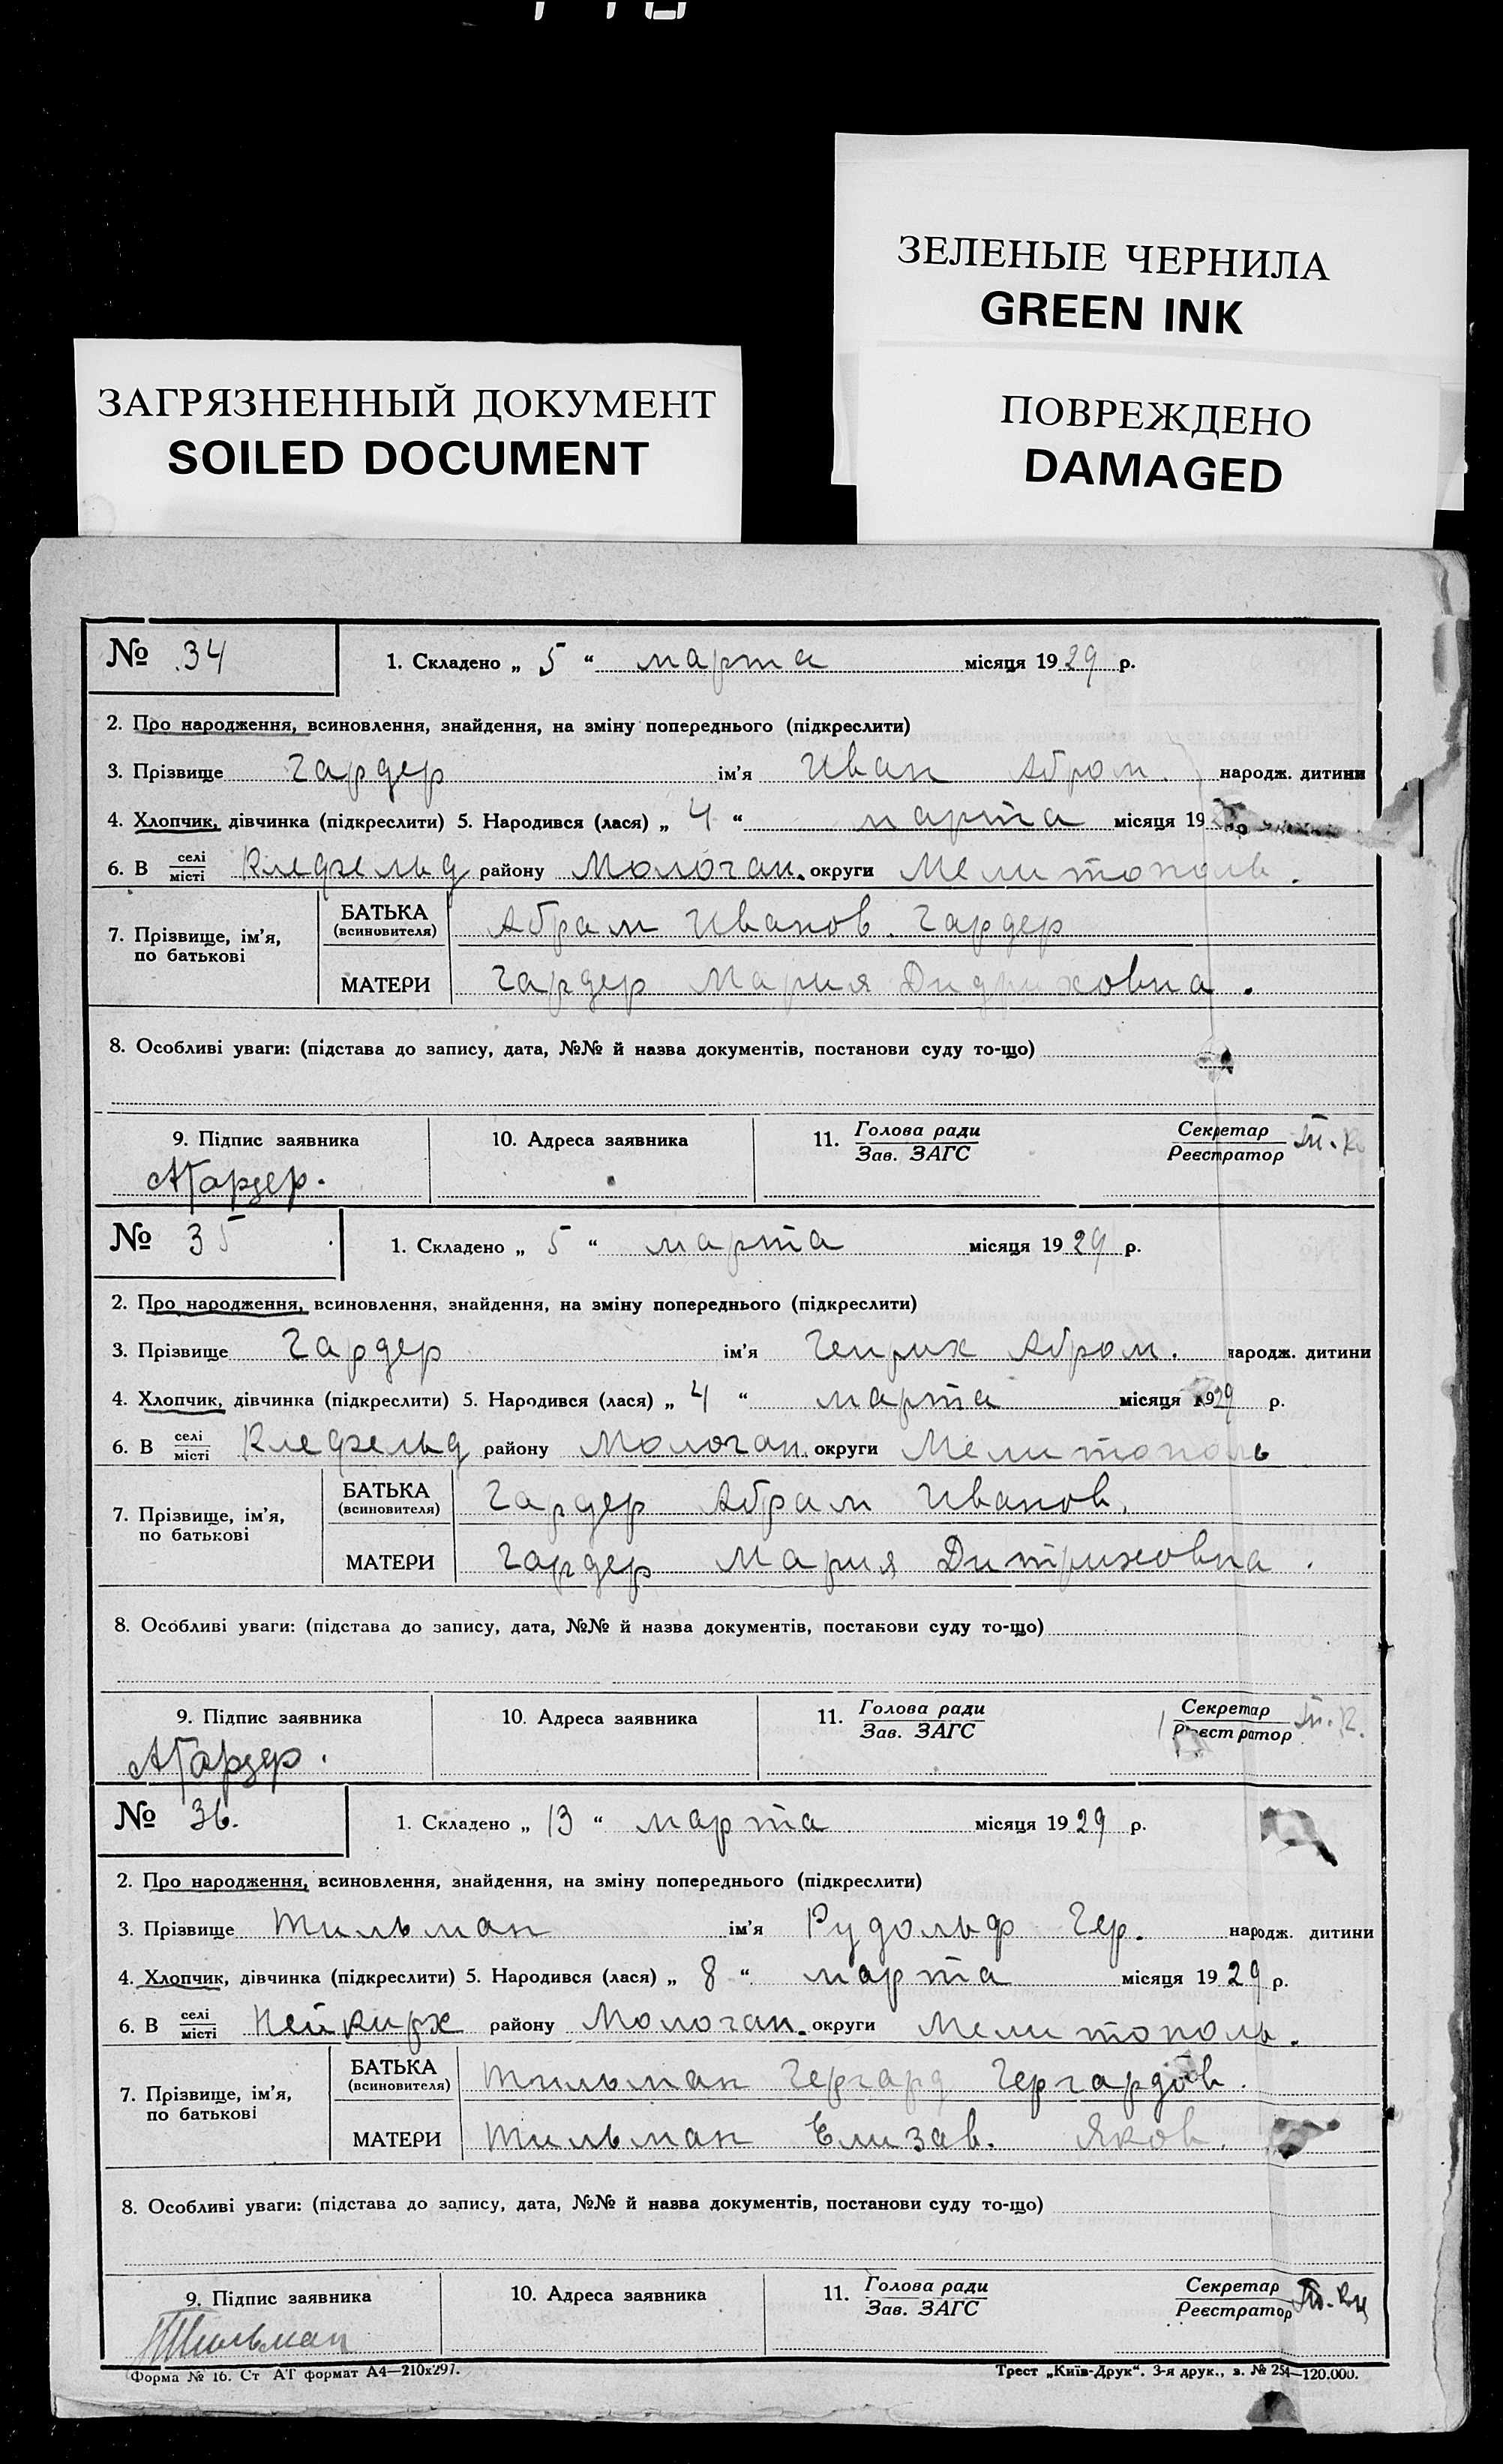 ЗЕЛЕНЫЕ ЧЕРНИЛА
GREEN INK
ЗАГРЯЗНЕННЫЙ ДОКУМЕНТ
SOILED DOCUMENT
ПОВРЕЖДЕНО
DAMAGED
№ 34 1. Складено „ 5 “ марта місяця 1929 р.
2. Про народження, всиновлення, знайдення, на зміну попереднього (підкреслити)
3. Прізвище Гардер ім’я Иван Абрам. народж. дитини
4. Хлопчик, дівчинка (підкреслити) 5. Народився (лася) „ 4 “ марта місяця 19
6. В селі/місті Клефельд району Молочан. округи Мелитополь.
7. Прізвище, ім’я, по батькові БАТЬКА (всиновителя) Абрам Иванов. Гардер
МАТЕРИ Гардер Мария Дидриховна.
8. Особливі уваги: (підстава до запису, дата, №№ й назва документів, постанови суду то-що)
9. Підпис заявника 10. Адреса заявника 11. Голова ради/Зав. ЗАГС Секретар/Реєстратор
АГардер.
№ 35 1. Складено „ 5 “ марта місяця 1929 р.
2. Про народження, всиновлення, знайдення, на зміну попереднього (підкреслити)
3. Прізвище Гардер ім’я Генрих Абрам. народж. дитини
4. Хлопчик, дівчинка (підкреслити) 5. Народився (лася) „ 4 “ марта місяця 1929 р.
6. В селі/місті Клефельд району Молочан. округи Мелитополь
7. Прізвище, ім’я, по батькові БАТЬКА (всиновителя) Гардер Абрам Иванов.
МАТЕРИ Гардер Мария Дитриховна.
8. Особливі уваги: (підстава до запису, дата, №№ й назва документів, постанови суду то-що)
9. Підпис заявника 10. Адреса заявника 11. Голова ради/Зав. ЗАГС Секретар/Реєстратор
АГардер.
№ 36. 1. Складено „ 13 “ марта місяця 1929 р.
2. Про народження, всиновлення, знайдення, на зміну попереднього (підкреслити)
3. Прізвище Тильман ім’я Рудольф Гер. народж. дитини
4. Хлопчик, дівчинка (підкреслити) 5. Народився (лася) „ 8 “ марта місяця 1929 р.
6. В селі/місті Нейкирх району Молочан. округи Мелитополь.
7. Прізвище, ім’я, по батькові БАТЬКА (всиновителя) Тильман Гергард Гергардов.
МАТЕРИ Тильман Елизав. Яков.
8. Особливі уваги: (підстава до запису, дата, №№ й назва документів, постанови суду то-що)
9. Підпис заявника 10. Адреса заявника 11. Голова ради/Зав. ЗАГС Секретар/Реєстратор
Тильман
Форма № 16. Ст АТ формат А4—210х297. Трест „Київ-Друк“. 3-я друк., з. № 254—120.000.